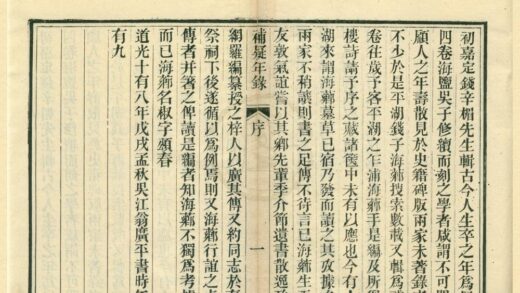 初嘉定錢辛楣先生輯古今人生卒之年爲
四卷海鹽吳子修續而刻之學者咸謂不可
顧人之年壽散見於史籍碑版兩家未著錄
不少於是平湖錢子海薌搜索數載又輯爲
卷往歲予客平湖之乍浦海薌手是編及所
樓詩請予序之藏諸篋中未有以應也今有人
湖來謂海薌墓草已宿乃發而讀之其攷據
兩家不稍讓則書之足傳不待言已海薌生
友敦氣誼嘗以其鄉先輩季介節遺書散逸
補疑年錄 序 一
網羅編纂授之梓人以廣其傳又約同志於
祭祠下後遂循以爲例焉則又海薌行誼之
傳者幷著之俾讀是編者知海薌不獨爲考
而已海薌名椒字頳春
道光十有八年戊戌孟秋吳江翁廣平書時
有九